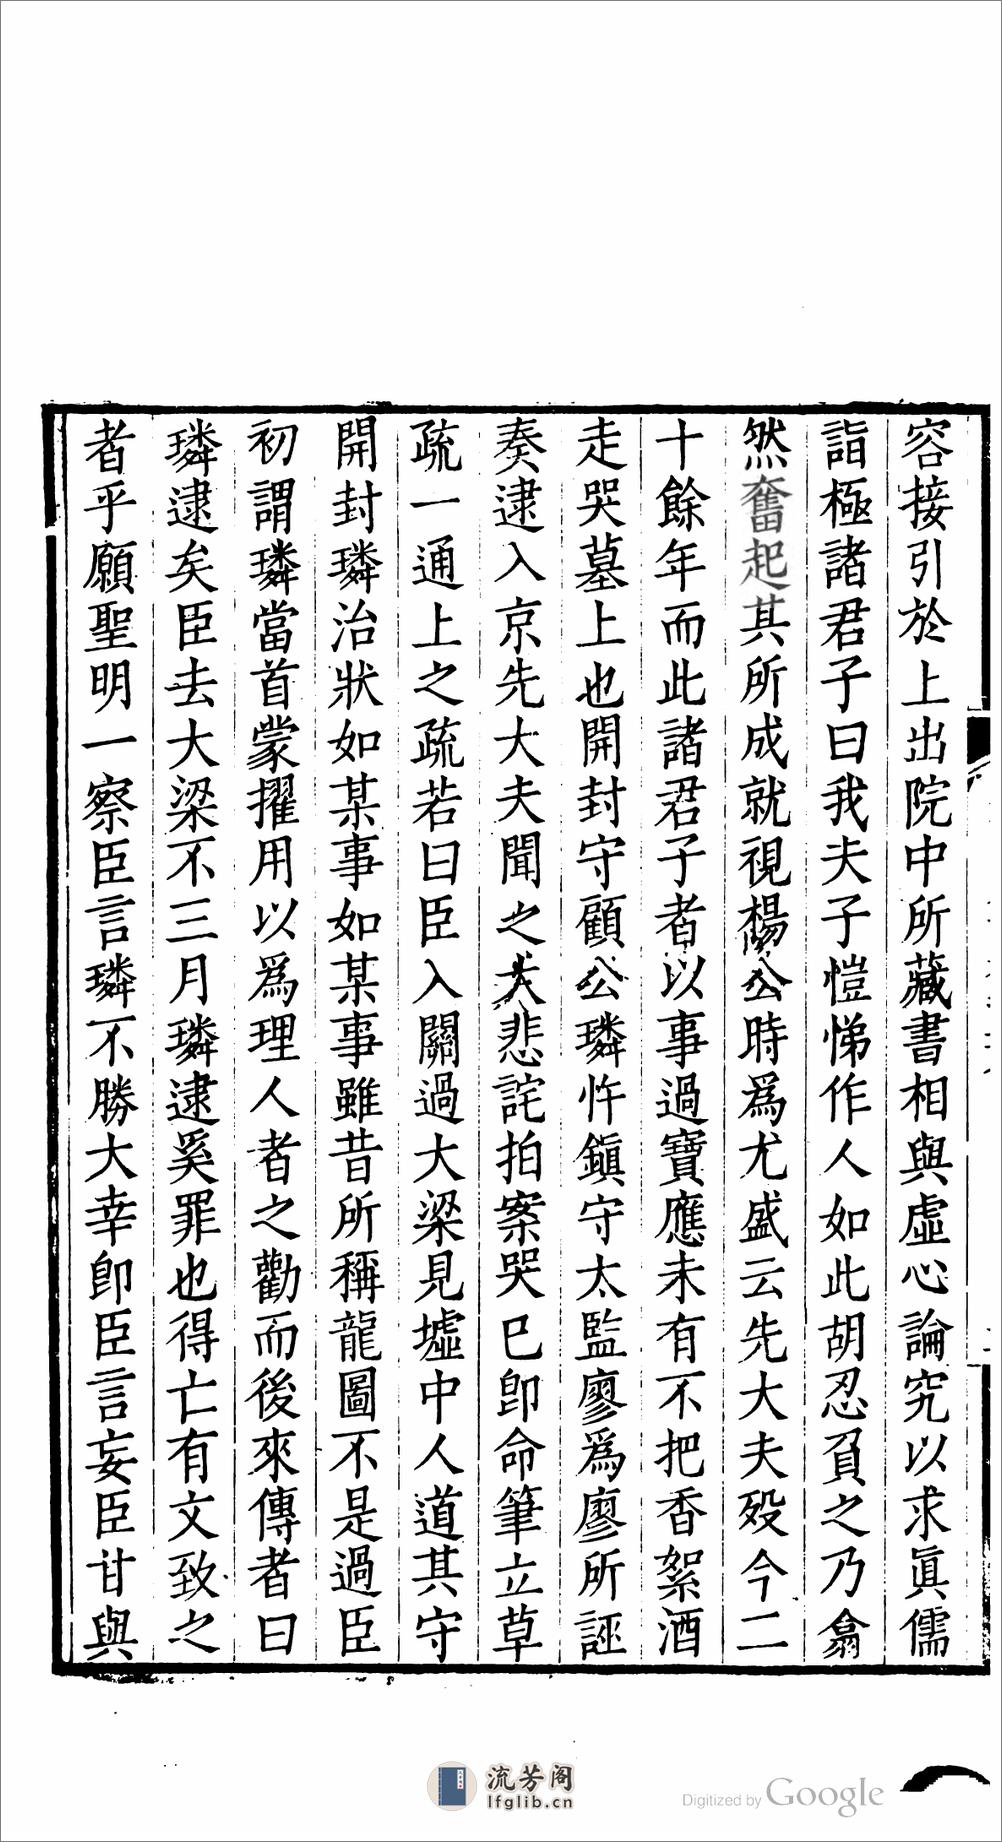 容接引於上出院中所藏書相與虛心論究以求眞儒
詣極諸君子曰我夫子愷悌作人如此胡忍負之乃翕
然奮起其所成就視楊公時爲尤盛云先大夫殁今二
十餘年而此諸君子者以事過寶應未有不把香絮酒
走哭墓上也開封守顧公璘忤鎭守太監廖爲廖所誣
奏逮入京先大夫聞之大悲詫拍案哭巳卽命筆立草
疏一通上之疏若曰臣入關過大梁見墟中人道其守
開封璘治狀如某事如某事雖昔所稱龍圖不是過臣
初謂璘當首蒙擢用以爲理人者之勸而後來傳者曰
璘逮矣臣去大梁不三月璘逮奚罪也得亡有文致之
者乎願聖明一察臣言璘不勝大幸卽臣言妄臣甘與
流芳阁
lfglib.cn
Digitized by Google